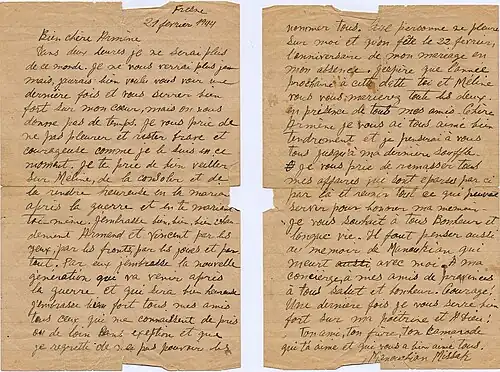 Fresne
21 fevrier 1944
Bien chère Armène
Dans deux heures je ne serai plus
de ce monde. Je ne vous verrai plus ja
mais, j'aurais bien voulu vous voir une
dernière fois et vous serrer bien
fort sur mon cœur, mais on nous
donne pas de temps. Je vous prie de
ne pas pleurer et rester brave et
courageuse comme je le suis en ce
moment. Je te prie de bien veiller
sur Méline, de la consoler et de
la rendre heureuse en te mariant
après la guerre et en te mariant
toi-même. J'embrasse bien, bien, bien chau
dement Armand et Vincent par les
yeux, par les fronts, par les joies et par
tout. Par eux j'embrasse la nouvelle
génération qui va venir après
la guerre et qui sera bien heureuse
J'embrasse bien fort tous mes amis
tous ceux qui me connaissent de près
ou de loin sans exeption et que
je regrette de ne pas pouvoir les
nommer tous. Que personne ne pleure
sur moi et qu'on fête le 22 fevrier,
l'anniversaire de mon mereage en
mon absence. J'espère que l'année
prochaine à cette date toi et Méline
vous vous marierez toute les deux
en présence de tout mes amis. Chère
Armène je vous ai tous aimé bien
tendrement et je penserai à vous
tous jusqu'à ma dernière souffle.
Je vous prie de ramasser tous
mes affaires qui sont eparses par ci
par là et rien, tout ce qui peuvent
servir pour honnorer ma memoire
Je vous souhait à tous Bonheur et
longue vie. Il faut penser aussi
au mémoire de Manoukian qui
meurt aussi avec moi. A ma
concièrge, à mes amis de
à tous salut et bonheur. Courage!
Une dernière fois je vous serre bien
fort sur ma poitrine et Adieu!
Ton ami, ton frère, ton camarade
qui t'aime et qui vous a bien aimé tous.
Manouchian Missak